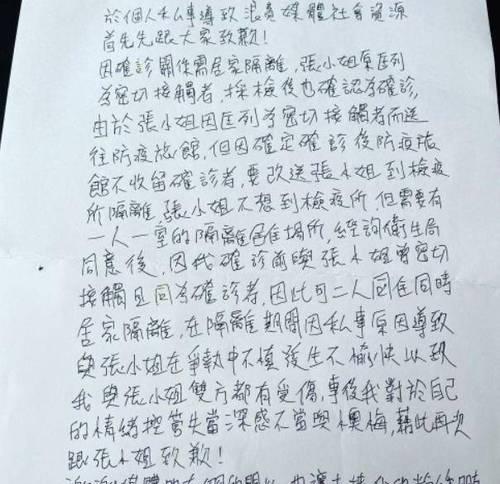 於個人私事導致浪費媒體社會資源
首先先跟大家致歉！
因確診關係需居家隔離，張小姐原匡列
為密切接觸者，採檢後也確認為確診，
由於張小姐因匡列為密切接觸者而送
往防疫旅館，但因確定確診後防疫旅
館不收留確診者，要改送張小姐到檢疫
所隔離，張小姐不想到檢疫所，但需要有
一人一室的隔離居住場所，經詢衛生局
同意後，因我確診前與張小姐曾密切
接觸且同為確診者，因此可二人同住同時
居家隔離，在隔離期間因私事原因導致
與張小姐在爭執中不慎發生不愉快以致
我與張小姐雙方都有受傷，事後我對於自己
的情緒控管失當深感不當與懊悔，藉此再次
跟張小姐致歉！